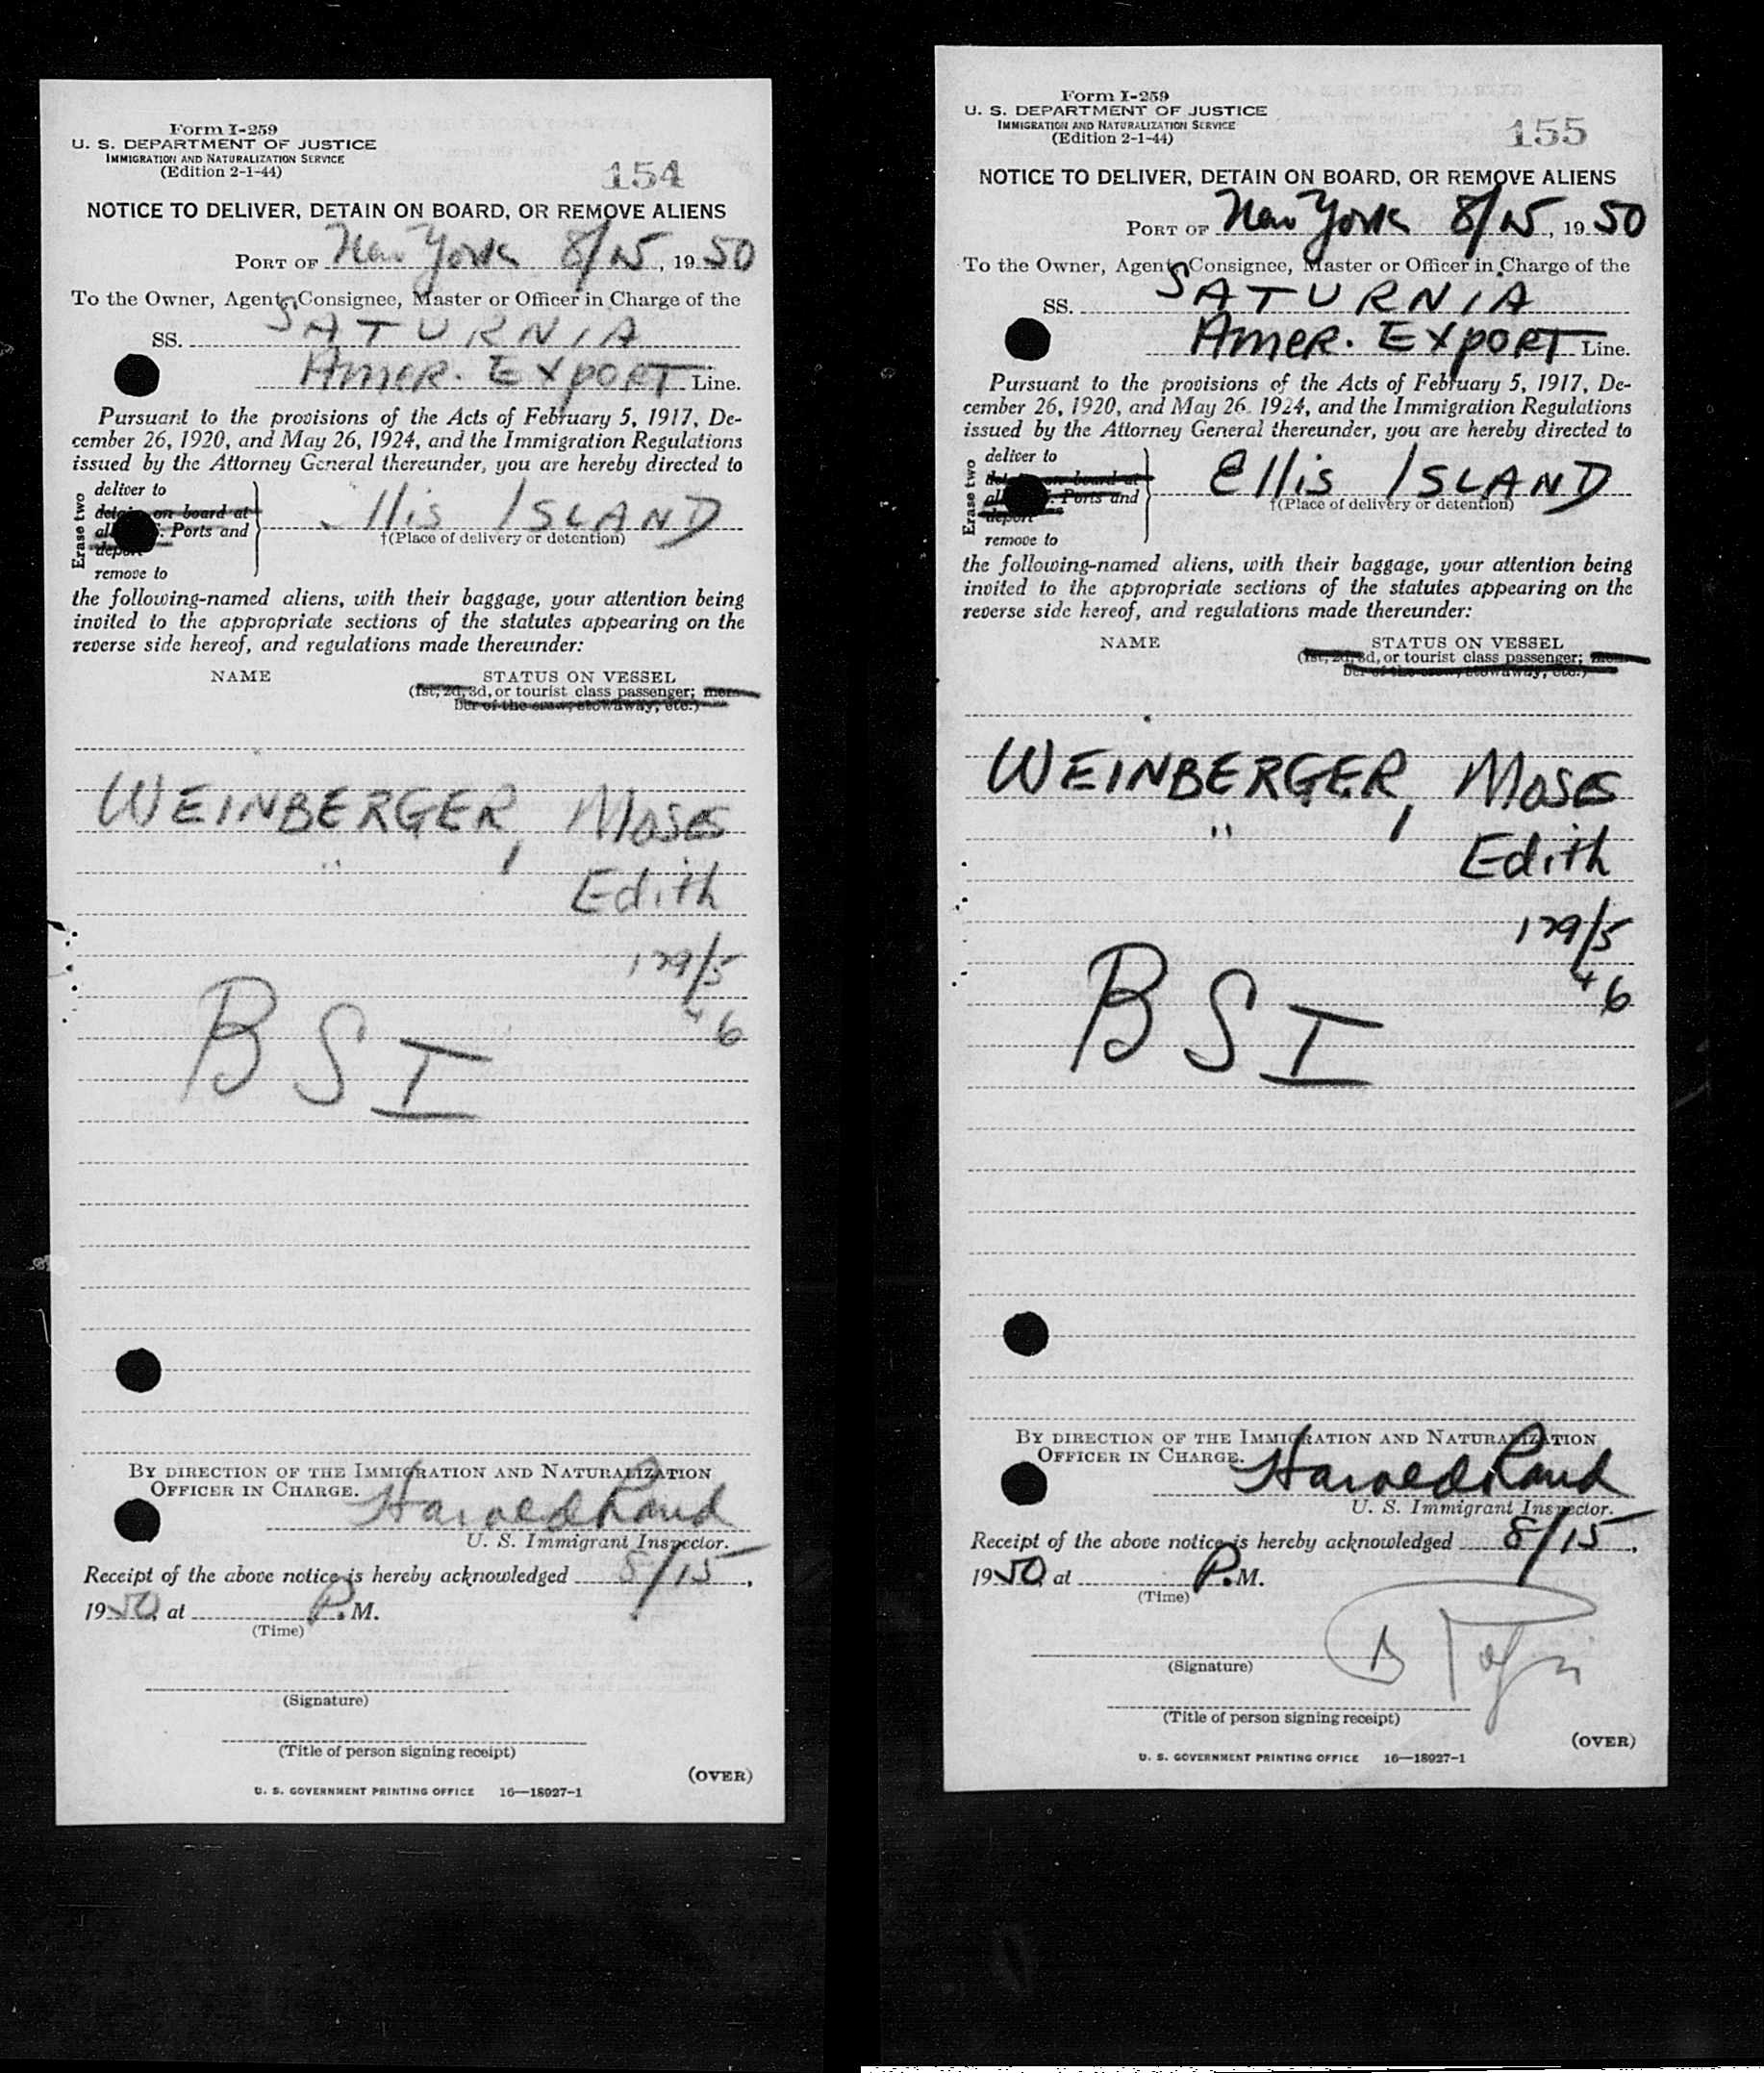 Form I-259
U. S. DEPARTMENT OF JUSTICE
IMMIGRATION AND NATURALIZATION SERVICE
(Edition 2-1-44)
154
NOTICE TO DELIVER, DETAIN ON BOARD, OR REMOVE ALIENS
PORT OF New York 8/15, 1950
To the Owner, Agent, Consignee, Master or Officer in Charge of the
SS. SATURNIA
Amer. Export Line.
Pursuant to the provisions of the Acts of February 5, 1917, De-
cember 26, 1920, and May 26, 1924, and the Immigration Regulations
issued by the Attorney General thereunder, you are hereby directed to
Erase two
deliver to
on board at
Ports and
remove to
llis ISLAND
†(Place of delivery or detention)
the following-named aliens, with their baggage, your attention being
invited to the appropriate sections of the statutes appearing on the
reverse side hereof, and regulations made thereunder:
NAME STATUS ON VESSEL
(1st, 2d, 3d, or tourist class passenger; mem-
ber of the crew, stowaway, etc.)
WEINBERGER, Moses
" Edith
179/5
" 6
BSI
BY DIRECTION OF THE IMMIGRATION AND NATURALIZATION
OFFICER IN CHARGE.
Harold Rand
U. S. Immigrant Inspector.
Receipt of the above notice is hereby acknowledged 8/15,
1950, at P.M.
(Time)
(Signature)
(Title of person signing receipt)
(OVER)
U. S. GOVERNMENT PRINTING OFFICE 16—18927-1
Form I-259
U. S. DEPARTMENT OF JUSTICE
IMMIGRATION AND NATURALIZATION SERVICE
(Edition 2-1-44)
155
NOTICE TO DELIVER, DETAIN ON BOARD, OR REMOVE ALIENS
PORT OF New York 8/15, 1950
To the Owner, Agent, Consignee, Master or Officer in Charge of the
SS. SATURNIA
Amer. Export Line.
Pursuant to the provisions of the Acts of February 5, 1917, De-
cember 26, 1920, and May 26, 1924, and the Immigration Regulations
issued by the Attorney General thereunder, you are hereby directed to
Erase two
deliver to
on board at
Ports and
deport
remove to
Ellis ISLAND
†(Place of delivery or detention)
the following-named aliens, with their baggage, your attention being
invited to the appropriate sections of the statutes appearing on the
reverse side hereof, and regulations made thereunder:
NAME STATUS ON VESSEL
(1st, 2d, 3d, or tourist class passenger; mem-
ber of the crew, stowaway, etc.)
WEINBERGER, Moses
" Edith
179/5
" 6
BSI
BY DIRECTION OF THE IMMIGRATION AND NATURALIZATION
OFFICER IN CHARGE.
Harold Rand
U. S. Immigrant Inspector.
Receipt of the above notice is hereby acknowledged 8/15,
1950, at P.M.
(Time)
(Signature)
(Title of person signing receipt)
(OVER)
U. S. GOVERNMENT PRINTING OFFICE 16—18927-1